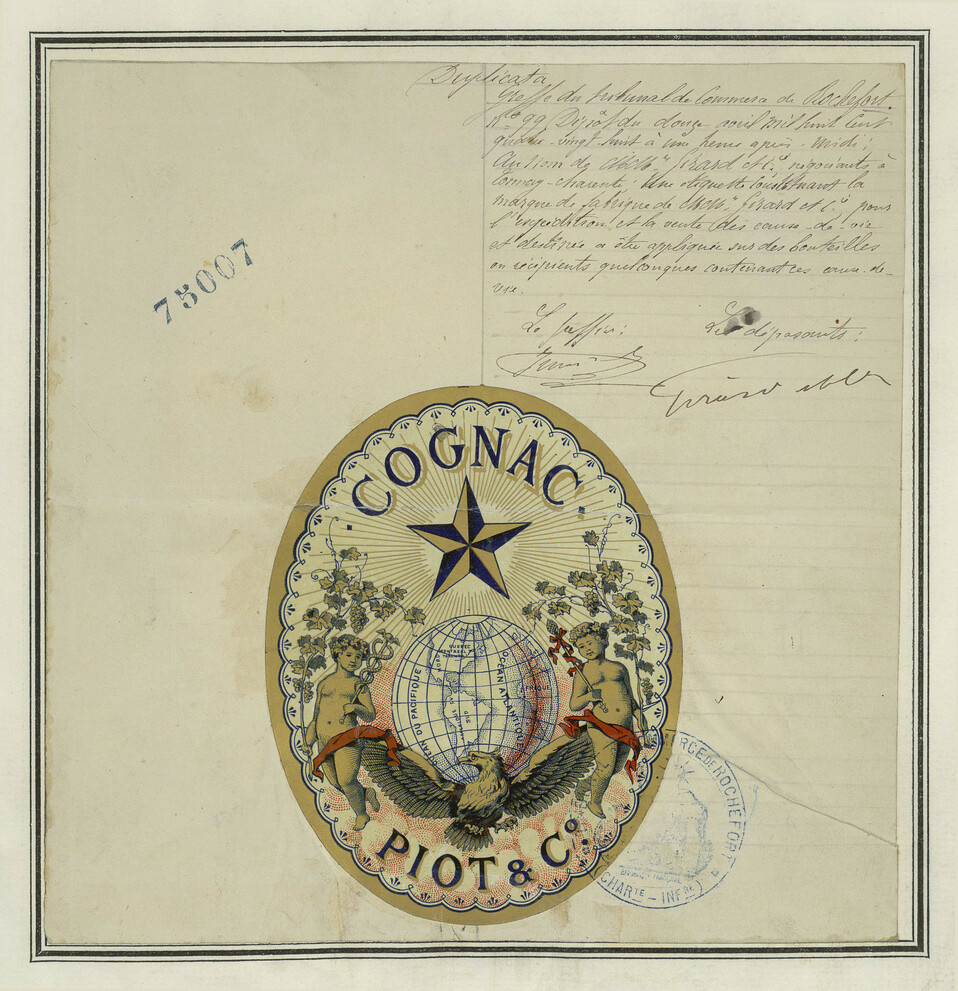 Duplicata
Greffe du tribunal de Commerce de Rochefort.
N.º 99 Dépôt du douze avril mil huit cent
quatre-vingt-huit à une heure après-midi;
Au nom de MM. Girard et C.ie, négociants à
Tonnay-charente; Une étiquette constituant la
marque de fabrique de MM. Girard et C.ie pour
l'expédition et la vente des eaux-de-vie
et destinée à être appliquée sur des bouteilles
ou récipients quelconques contenant ces eaux-de-
vie.
Le greffier: Les déposants:
75007
COGNAC
QUEBEC
MONTREAL
OCEAN DU PACIFIQUE
OCEAN ATLANTIQUE
AFRIQUE
PIOT & Cº
RCE DE ROCHEFORT
(CHARTE - INFRE)